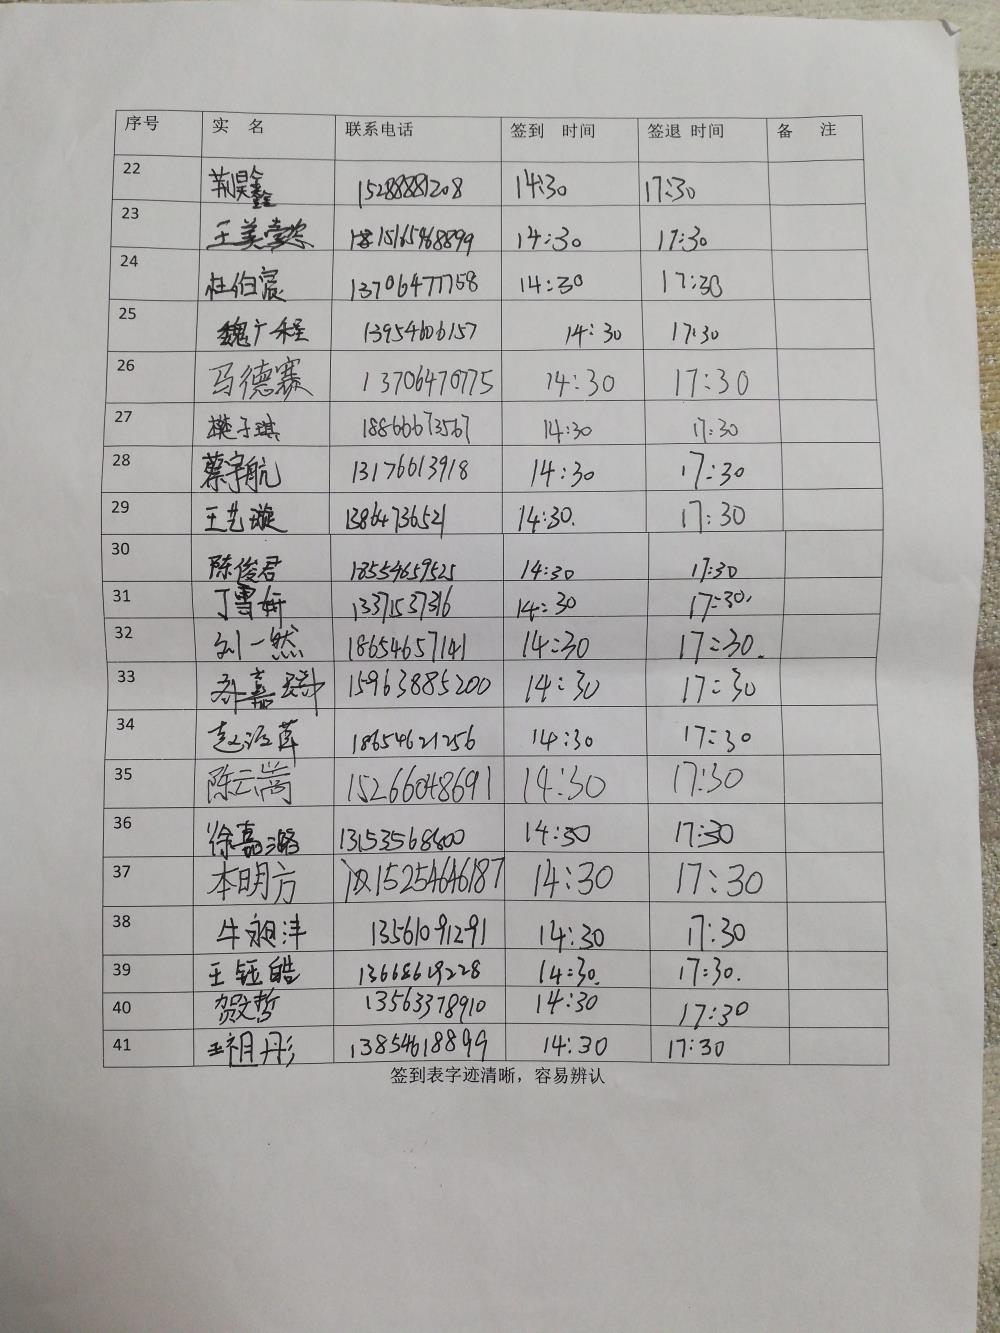 序号 实 名 联系电话 签到 时间 签退 时间 备 注
22 荆昊鑫 15288881208 14:30 17:30
23 王美懿 15165468899 14:30 17:30
24 杜伯宸 13706477758 14:30 17:30
25 魏广程 13954606157 14:30 17:30
26 马德赛 13706470775 14:30 17:30
27 樊子琪 18866673567 14:30 17:30
28 蔡宇航 13176613918 14:30 17:30
29 王艺璇 13864736521 14:30. 17:30
30 陈俊君 18554659525 14:30 17:30
31 丁雪妍 13371537316 14:30 17:30.
32 刘一然 18654657141 14:30 17:30.
33 嘉 15963885200 14:30 17:30
34 赵 18654621256 14:30 17:30
35 陈云嵩 15266048691 14:30 17:30
36 徐嘉璐 13153568800 14:30 17:30
37 本明方 15254646187 14:30 17:30
38 牛翊沣 13561091291 14:30 17:30
39 王钰皓 13668619228 14:30. 17:30.
40 贺文哲 13563378910 14:30 17:30
41 王祖彤 13854618899 14:30 17:30
签到表字迹清晰，容易辨认